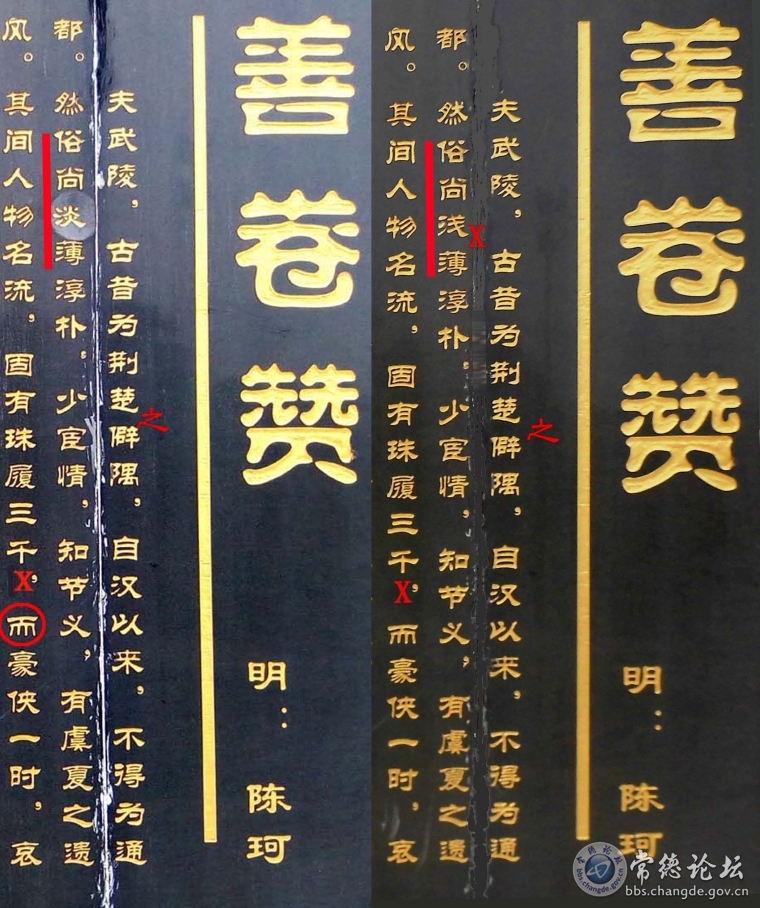 善卷赞
明：陈珂
夫武陵，古昔为荆楚僻隅，自汉以来，不得为通
之
都。然俗尚淡薄淳朴，少宦情，知节义，有虞夏之遗
风。其间人物名流，固有珠履三千，而豪侠一时，哀
X
善卷赞
明：陈珂
夫武陵，古昔为荆楚僻隅，自汉以来，不得为通
之
都。然俗尚浅薄淳朴，少宦情，知节义，有虞夏之遗
X
风。其间人物名流，固有珠履三千，而豪侠一时，哀
X
常德论坛
bbs.changde.gov.cn